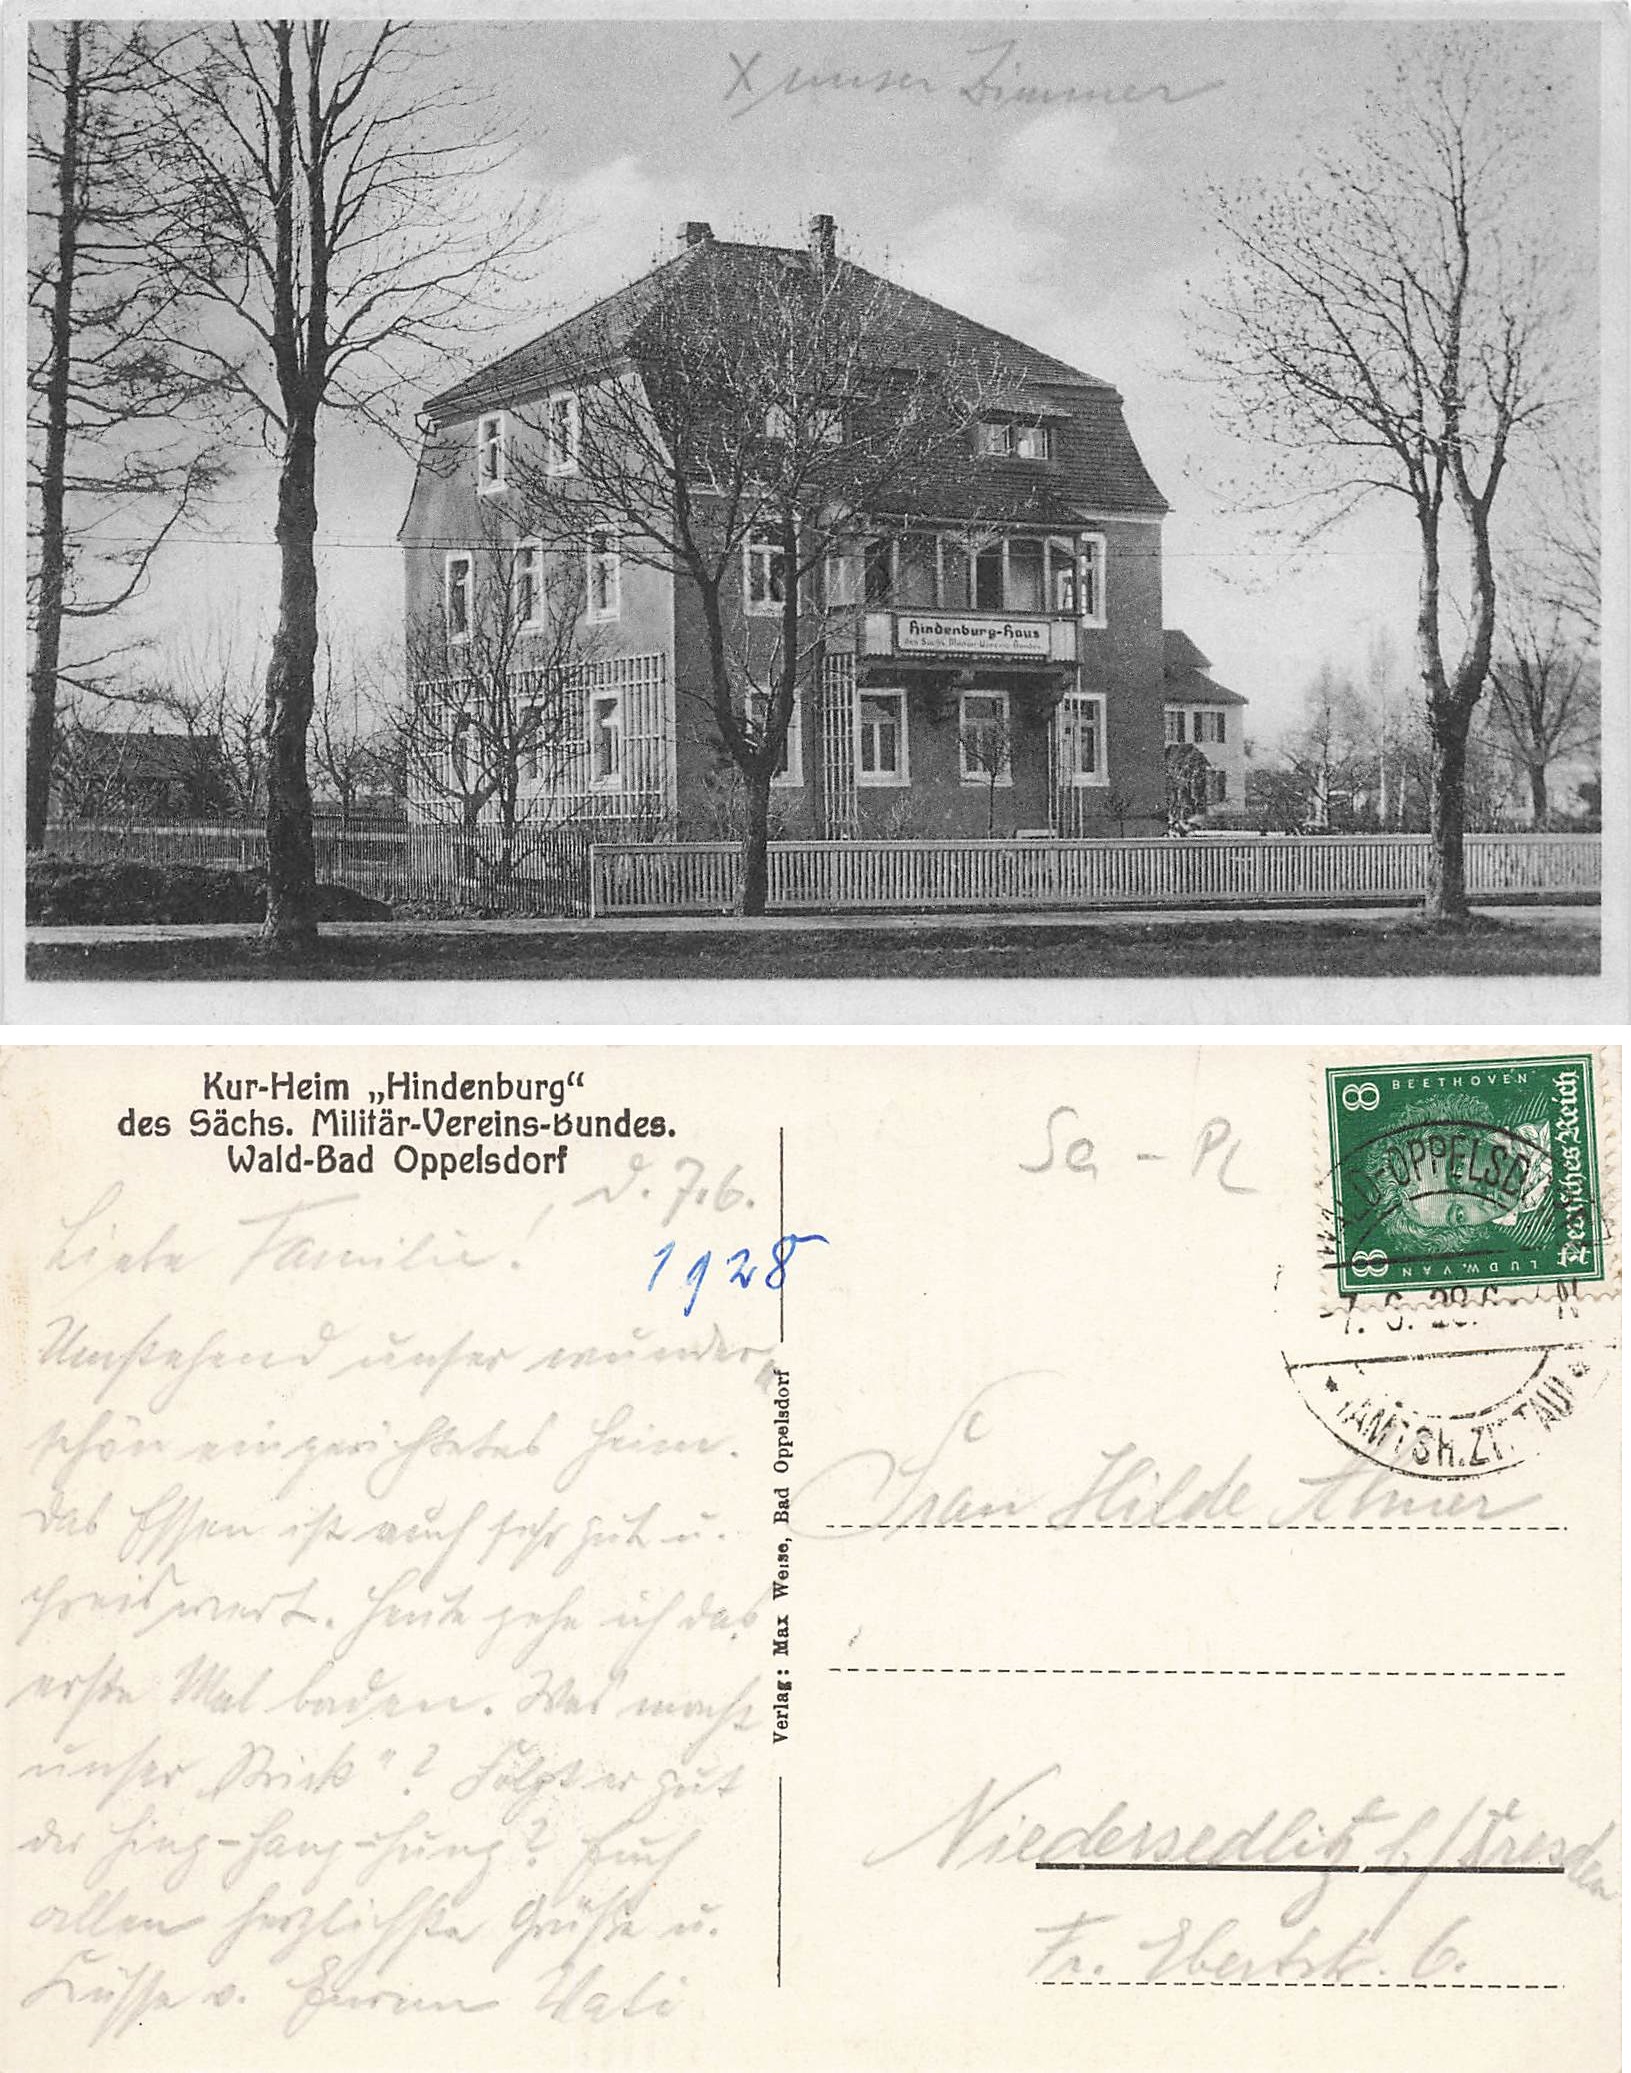 X unser Zimmer
Hindenburg-Haus
des Sächs. Militär-Vereins-Bundes
Kur-Heim „Hindenburg“
des Sächs. Militär-Vereins-Bundes.
Wald-Bad Oppelsdorf
d. 7.6.
1928
Liebe Familie!
Umstehend unser wunder-
schön eingerichtetes Heim.
Das Essen ist auch sehr gut u.
preiswert. Heute gehe ich das
erste Mal baden. Was macht
unser „Strick“? Folgt er gut
der Hing-Hang-Hung? Euch
allen herzlichste Grüße u.
Küsse v. Eurem Vati
Verlag: Max Weise, Bad Oppelsdorf
Sa - Pl
BEETHOVEN
8
Deutsches Reich
8
LUDW. VAN
OPPELSD
7. 6. 28.
(AMTSH. ZITTAU)
Frau Hilde
Niedersedlitz b/Dresden
Fr. Ebertstr. 6.